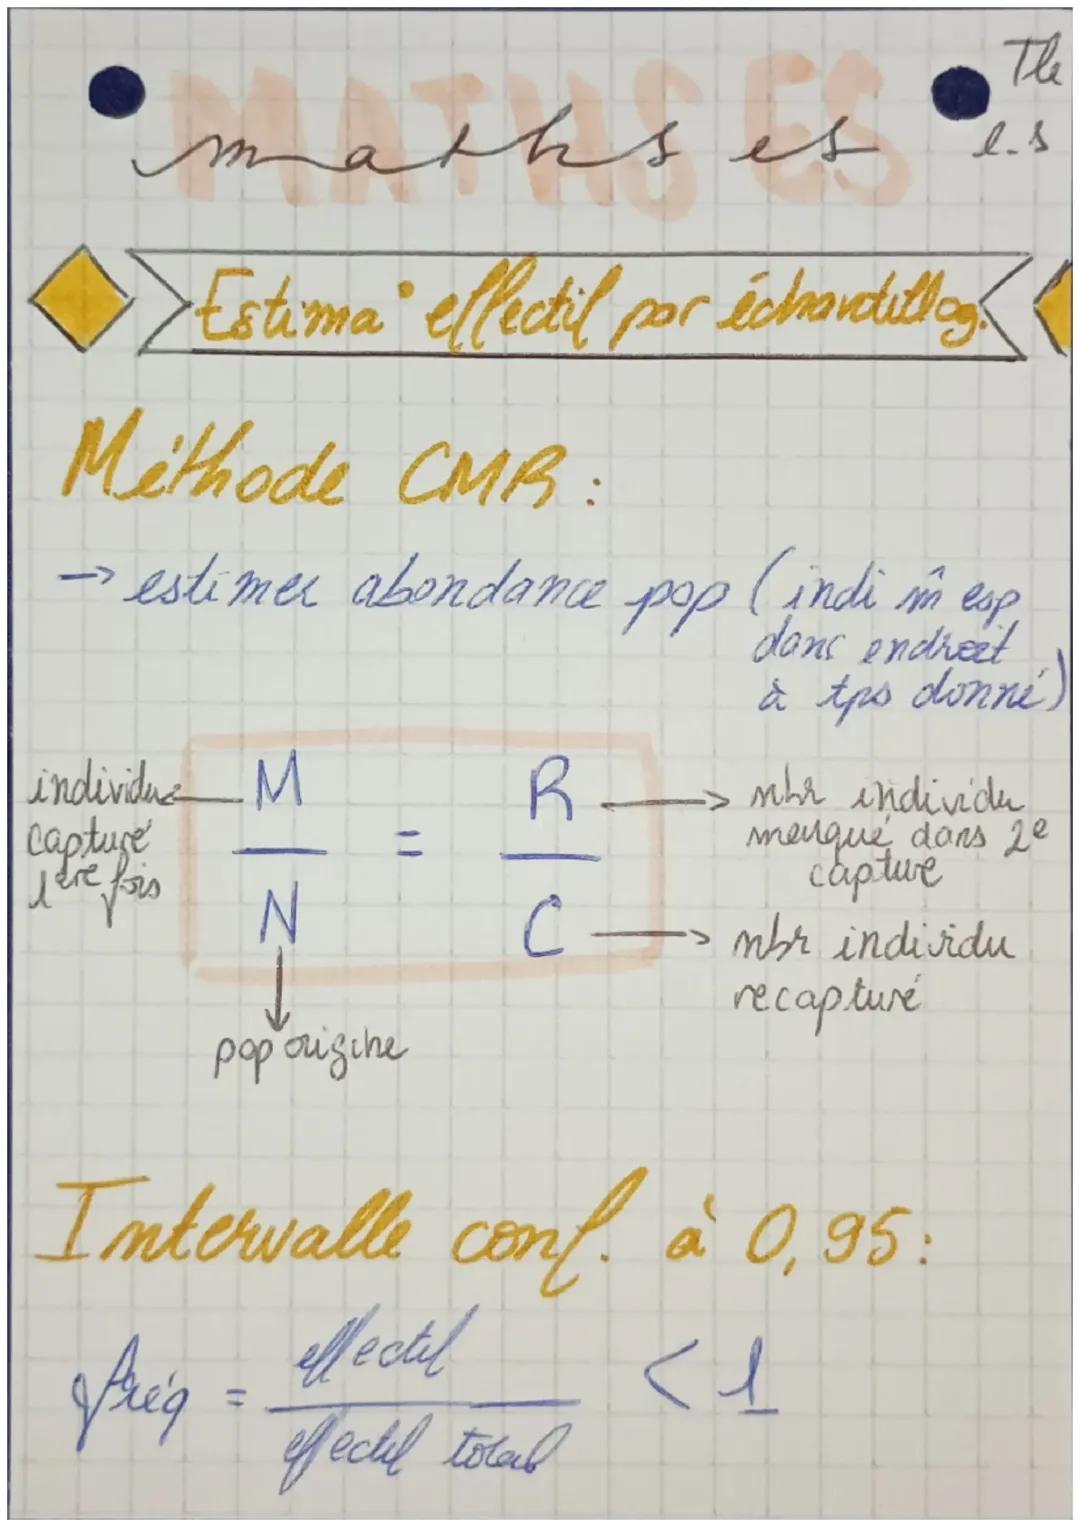 Tle
MATHS ES
maths es
e.s
Estima° effectif par échantillog.
Méthode CMR :
→ estimer abondance pop (indi m̂ esp
dans endroit
à tps donné)
individus capturé 1ère fois
M = R
N C
nbr individu
marqué dans 2e
capture
nbr individu
recapturé
pop origine
Intervalle conf. à 0,95 :
fréq = effectif < 1
effectif total